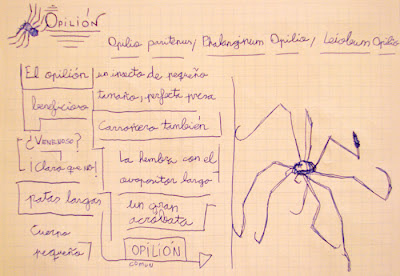 OPILIÓN
Opilio parietinus/ Phalanginum Opilio/ Leiobum Opilio
El opilión
un insecto de pequeño
tamaño, perfecta presa
beneficioso
Carroñero también
¿VENENOSO?
¡Claro que no!
La hembra con el
ovopositor largo
patas largas
un gran
acróbata
Cuerpo
pequeño
OPILIÓN
COMÚN